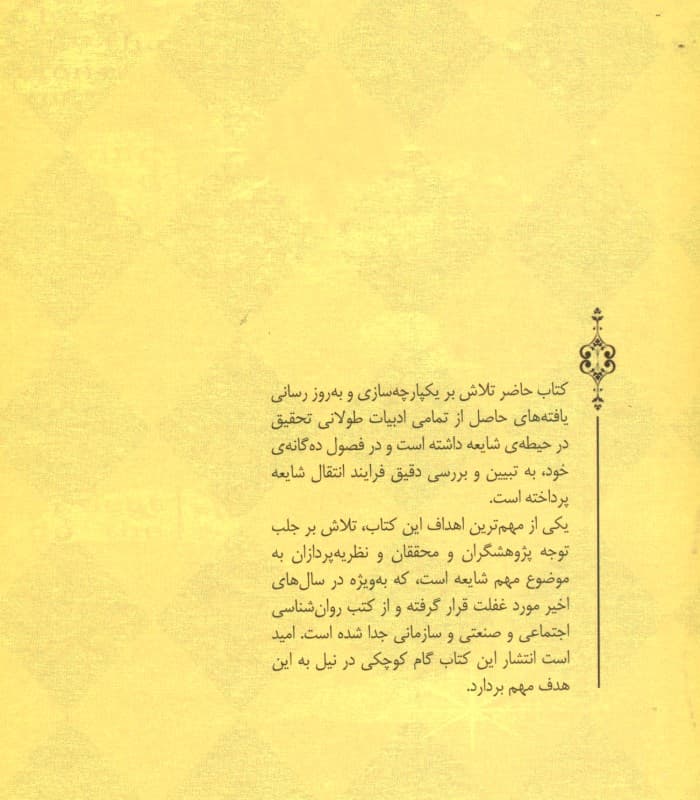 کتاب حاضر تلاش بر یکپارچه‌سازی و به‌روز رسانی
یافته‌های حاصل از تمامی ادبیات طولانی تحقیق
در حیطه‌ی شایعه داشته است و در فصول ده‌گانه‌ی
خود، به تبیین و بررسی دقیق فرایند انتقال شایعه
پرداخته است.
یکی از مهم‌ترین اهداف این کتاب، تلاش بر جلب
توجه پژوهشگران و محققان و نظریه‌پردازان به
موضوع مهم شایعه است، که به‌ویژه در سال‌های
اخیر مورد غفلت قرار گرفته و از کتب روان‌شناسی
اجتماعی و صنعتی و سازمانی جدا شده است. امید
است انتشار این کتاب گام کوچکی در نیل به این
هدف مهم بردارد.